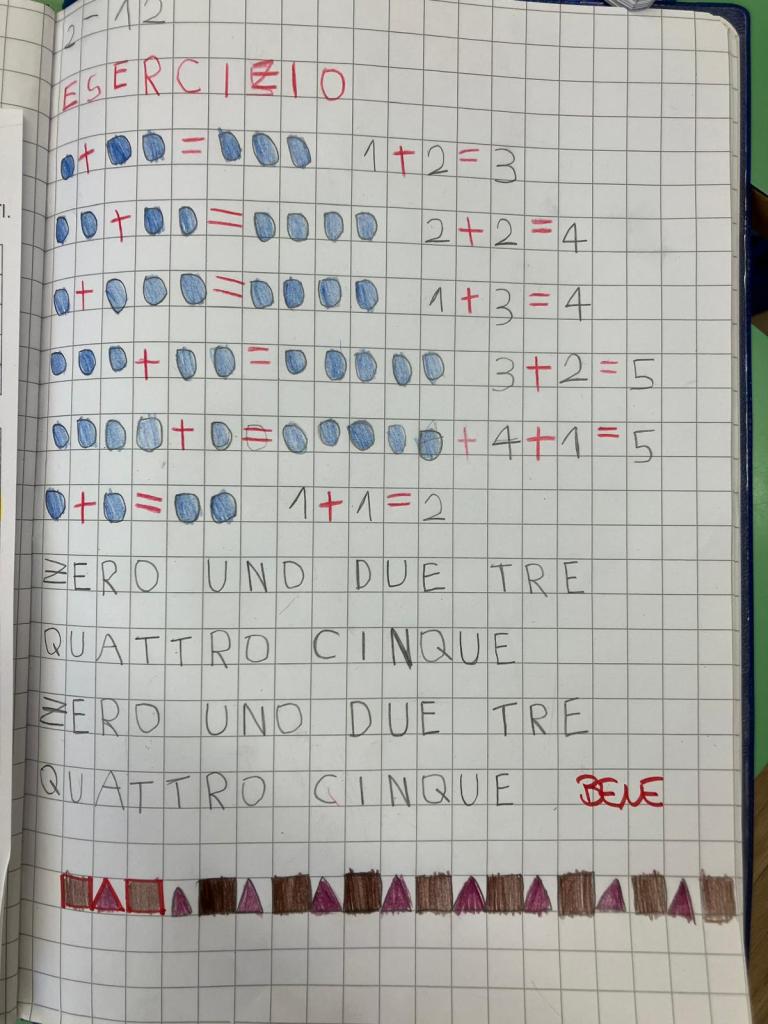 2-12
ESERCIZIO
+ = 1+2=3
+ = 2+2=4
+ = 1+3=4
+ = 3+2=5
+ = + 4+1=5
+ = 1+1=2
ZERO UNO DUE TRE
QUATTRO CINQUE
ZERO UNO DUE TRE
QUATTRO CINQUE BENE